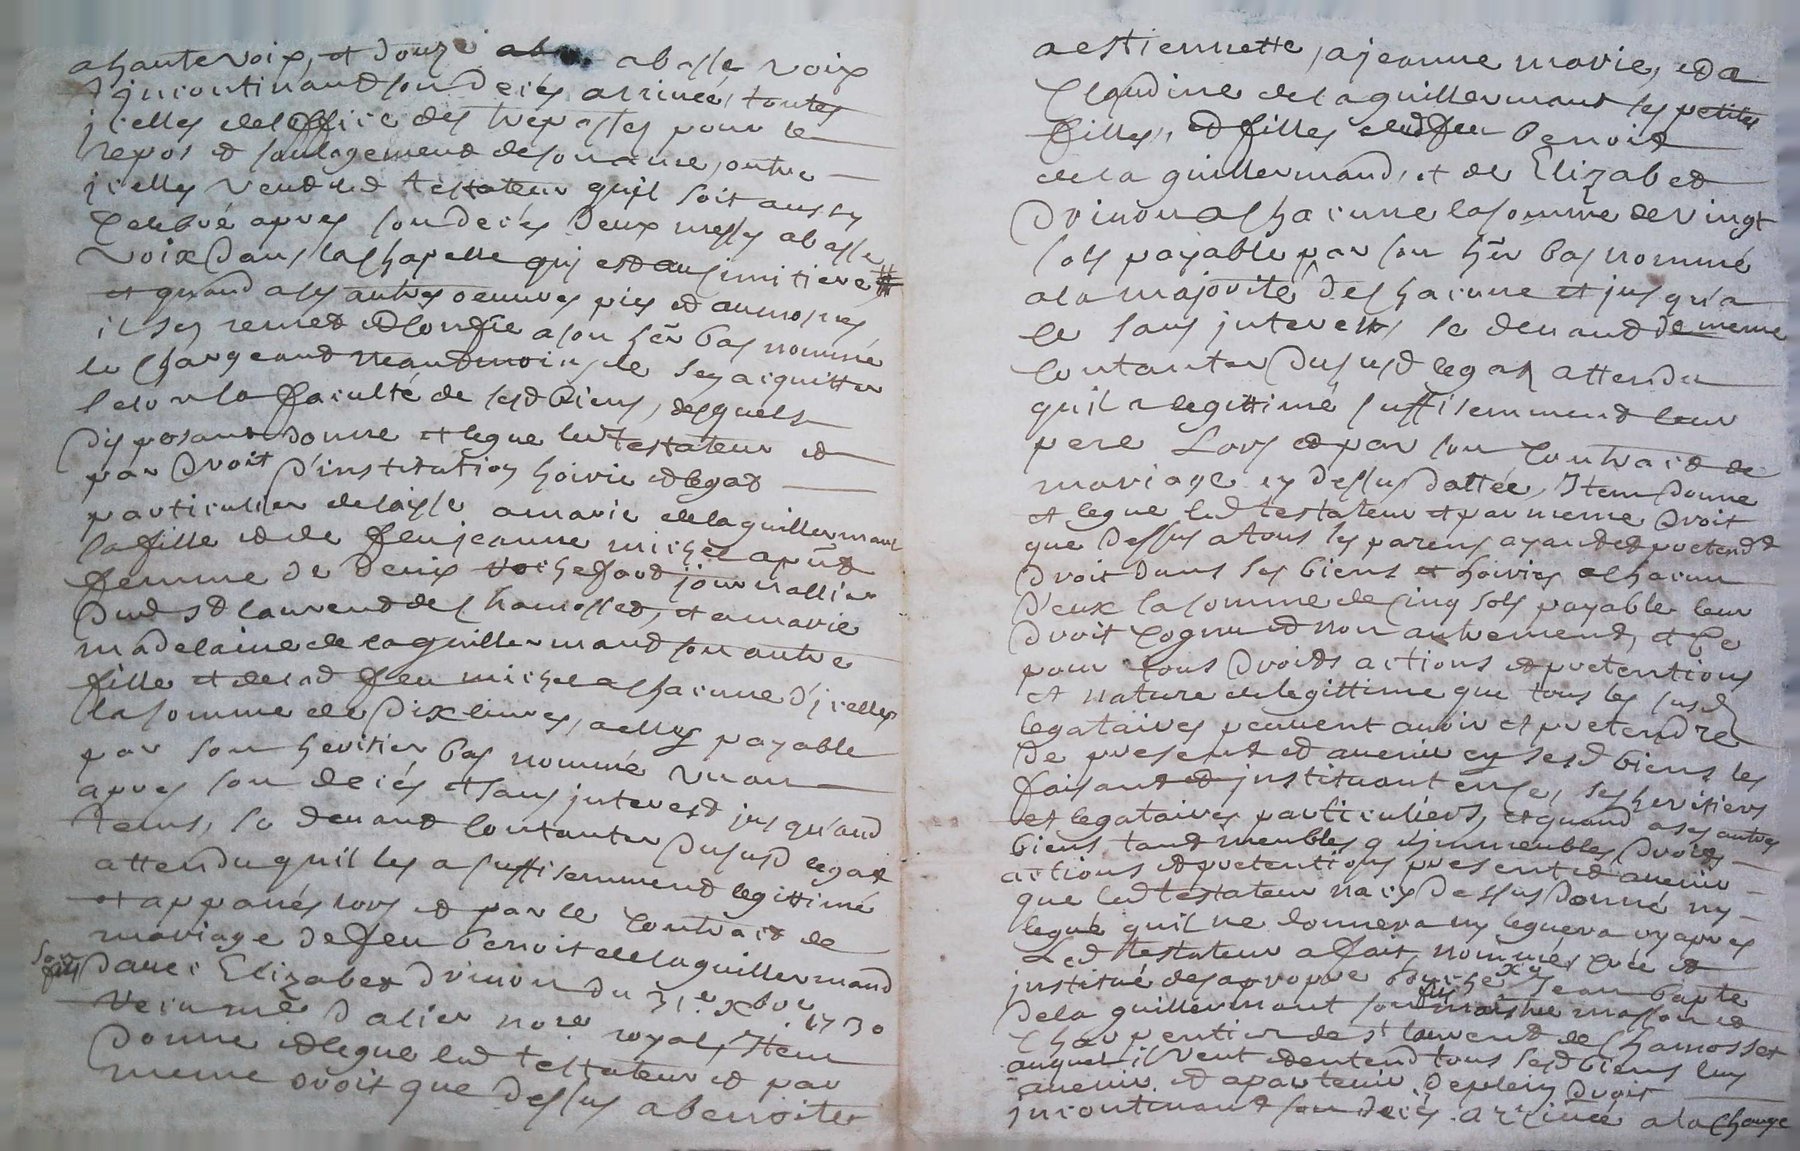 a haute voix, et douze a basse voix
incontinand son decés arrivée, toutes
jcelles de l'office des trepassés pour le
repos et soulagement de son ame, outre
jcelles veut led testateur quil soit aussy
celebré apres son decés deux messes a basse
voix dans la chapelle qui est au simitiere #
et quand a ses autres oeuvres pies et aumosnes
il s'en remet et confie a son her bas nommé
le chargeant neandmoins de s'en acquitter
selon la faculté de sesd biens, desquels
disposant donne et legue led testateur et
par droit d'institution hoirie et legat
particulier delaisse a marie delaguillermand
sa fille et de feu jeanne michel a pnt
femme de Denix rochefort journallier
dud st laurent de chamosset, et a marie
madelaine de laguillermand son autre
fille et de lad feu michel a chacune d'jcelles
la somme de dix livres, a elles payable
par son heritier bas nommé un an
apres son decés et sans interest jusqu'aud
tems, se devant contanter dusud legat
attendu quil les a suffisemment legittimé
et appanés lors et par le contract de
mariage de feu benoit delaguillermand
son fils
avec Elizabet drinon du 31e xbre 1730
receu me dalier nore royal, Item
donne et legue led testateur et par
meme droit que dessus a benoite
a estiennette, a jeanne marie, et a
Claudine de laguillermand ses petites
filles, et filles dud feu benoit
de la guillermand, et de Elizabet
drinon a chacune la somme de vingt
sols payable par son her bas nommé
a la majorité de chacune et jusqu'a
ce sans interest, se devant de meme
contanter dusud legat attendu
qu'il a legittimé suffisemment leur
pere Lors et par son contract de
mariage cy dessus dattée, Item donne
et legue led testateur et par meme droit
que dessus a tous les parens ayant et pretendt
droit dans ses biens et hoiries a chacun
d'eux la somme de cinq sols payable leur
droit cognu et non autrement, et ce
pour tous droits actions et pretentions
et nature de legittime que tous les susd
legataires peuvent avoir et pretendre
de present et avenir en sesd biens les
faisant et instituant en ce, ses heritiers
et legataires particuliers, et quand a ses autres
biens tant meubles qu'immeubles droits
actions et pretentions present et avenir
que led testateur n'a cy dessus donné ny
legué qu'il ne donnera ny leguera cy apres
Led testateur a fait, nommé, créé et
institué de sa propre bouche sr jean bapte
dela guillermant son fils maistre masson et
charpentier de st laurent de chamosset
auquel il veut et entend tous sesd biens luy
avenir et apartenir de plein droit
incontinant son decés arrivée a la charge